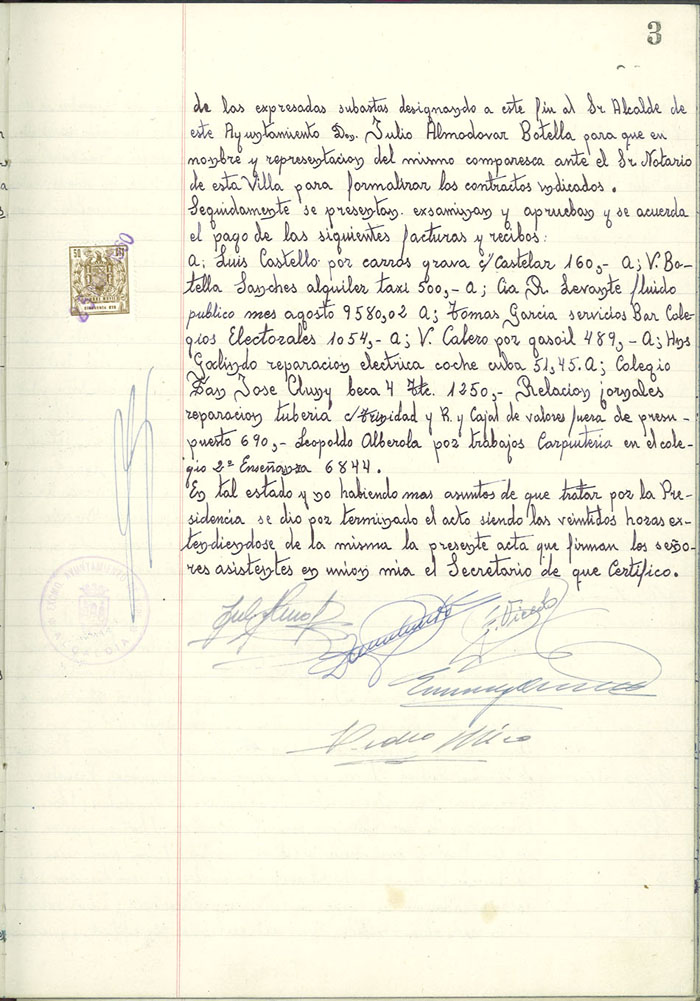 3
de las expresadas subastas designando a este fin al Sr Alcalde de
este Ayuntamiento Don. Julio Almodovar Botella para que en
nombre y representacion del mismo comparesca ante el Sr Notario
de esta Villa para formalizar los contractos indicados.
Seguidamente se presentan. exsaminan y aprueban y se acuerda
el pago de las siguientes facturas y recibos:
A; Luis Castello por carros grava c/ Castelar 160,- A; V. Bo-
tella Sanches alquiler taxi 500,- A; Cia R. Levante fluido
publico mes agosto 9580,02 A; Tomas Garcia servicios Bar Cole-
gios Electorales 1054,- A; V. Calero por gasoil 489,- A; Hns
Galindo reparacion electrica coche cuba 51,45. A; Colegio
San Jose Cluny beca 4 Ttc. 1250,- Relacion jornales
reparacion tuberia c/ trinidad y R. y Cajal de valores fuera de presu-
puerto 690,- Leopoldo Alberola por trabajos Carpinteria en el cole-
gio 2ª Enseñanza 6844.
En tal estado y no habiendo mas asuntos de que tratar por la Pre-
sidencia se dio por terminado el acto siendo las veintidos horas ex-
tendiendose de la misma la presente acta que firman los seño-
res asistentes en union mia el Secretario de que Certifico.
50
AYUNTAMIENTO
ALCALDIA
Pedro Miro